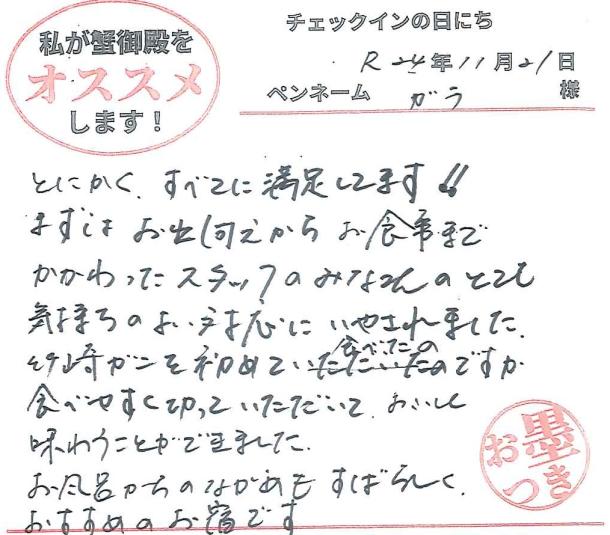 私が蟹御殿を
オススメ
します!
チェックインの日にち
R24年11月21日
ペンネーム ガラ 様
とにかく、すべてに満足してます!!
まずは お出伺えから お食事まで
かかわったスタッフのみなさんのとても
気持ちのよい対応に いやされました。
竹崎ガニを初めて食べたのですが
食べやすく切っていただいて、おいしく
味わうことができました。
お風呂からのながめも すばらしく、
おすすめのお宿です
お墨つき